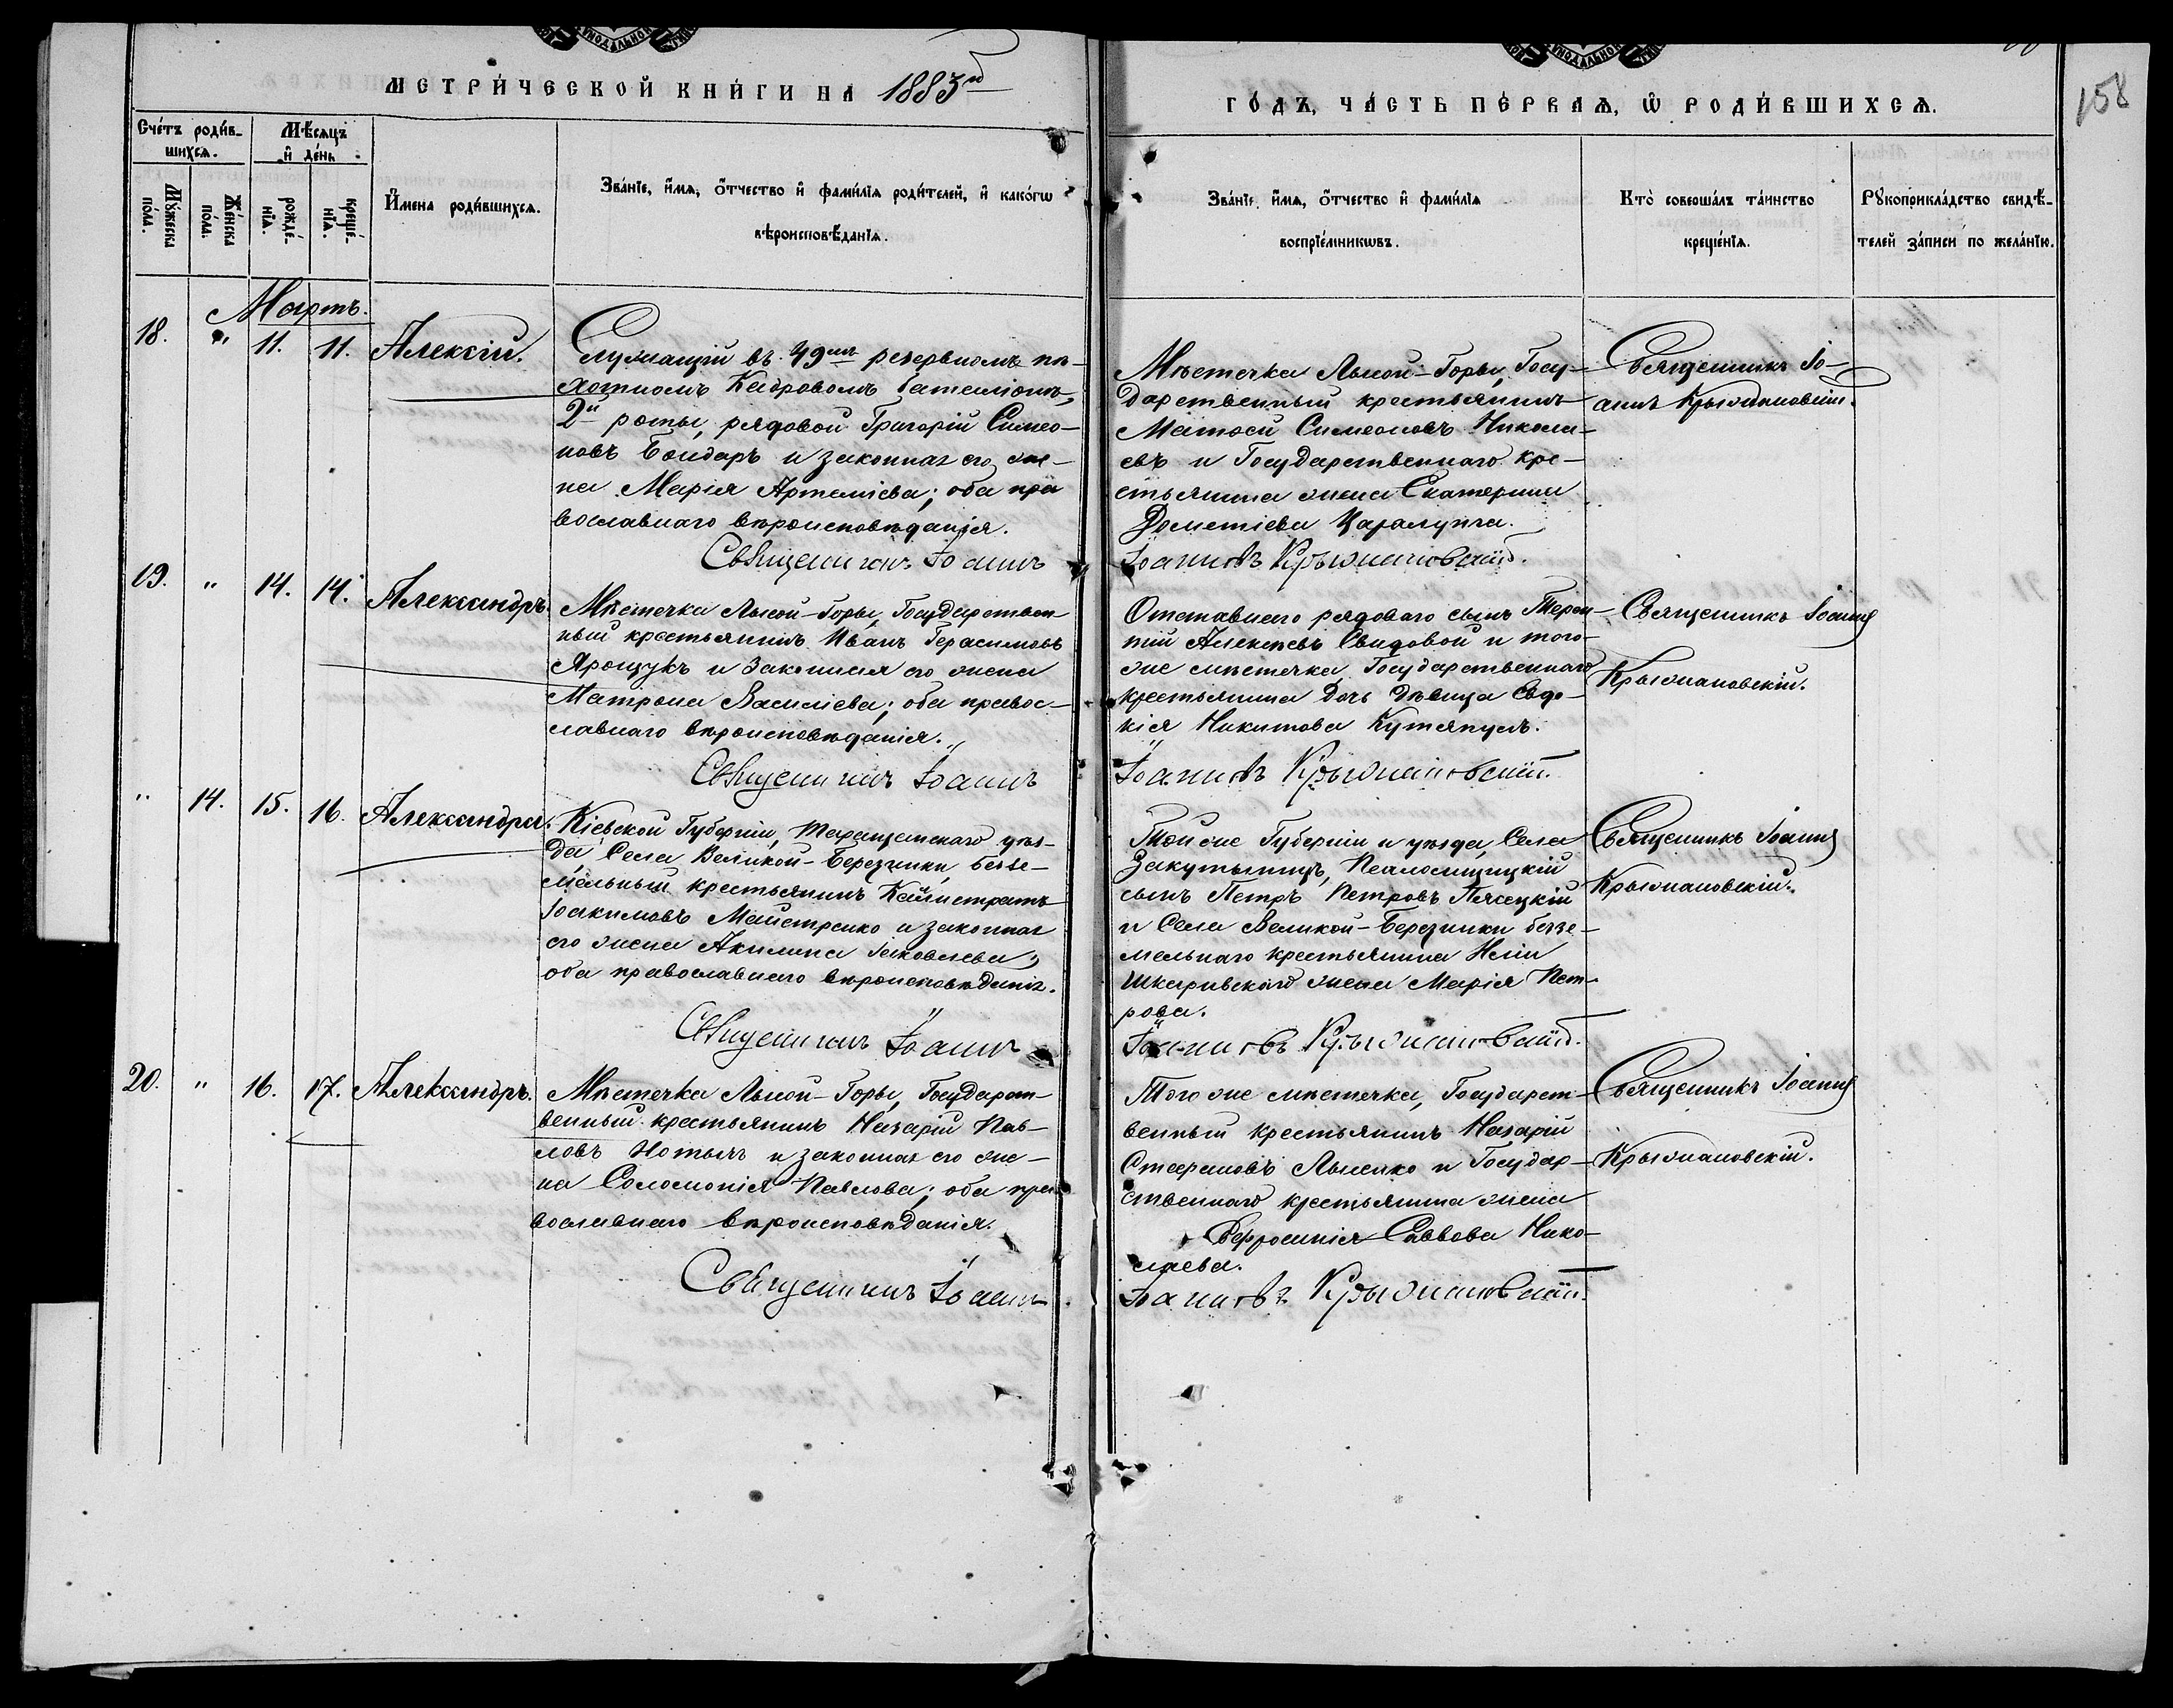 МЕТРИ́ЧЕСКОЙ КНИ́ГИ НА 1883й
ГО́ДЪ, ЧА́СТЬ ПЕ́РВАѦ, Ѡ҆ РОДИ́ВШИХСѦ.
158
Сче́тъ роди́в-
шихсѧ.
Мѣ́сѧцъ
и҆ де́нь
Мꙋ́жеска
по́ла.
Же́нска
по́ла.
рожде́-
нїѧ.
креще́-
нїѧ.
И҆́мена роди́вшихсѧ.
Зва́нїе, и҆́мѧ, ѻ҆́тчество и҆ фами́лїѧ роди́телей, и҆ како́гѡ
вѣроисповѣ́данїѧ.
Зва́нїе, и҆́мѧ, ѻ҆́тчество и҆ фами́лїѧ
воспрїе́мникѡвъ.
Кто̀ соверша́лъ та́инство
креще́нїѧ.
Рꙋкоприкла́дство свидѣ́-
телей за́писи по жела́нїю.
Мартъ.
18. " 11. 11. Алексій.
Служащій въ 49мъ резервномъ пѣ-
хотномъ Кадровомъ баталіонѣ,
2й роты, рядовой Григорій Симео-
новъ Бондарь и законная его же-
на Марія Артеміева; оба пра
вославнаго вѣроисповѣданія.
Священникъ Іоаннъ
Мѣстечка Лысой-Горы, Госу-
дарственный крестьянинъ
Матѳей Симеоновъ Никола-
евъ и Государственнаго кре-
стьянина жена Екатерина
Дометіева Царалунга.
Іоанновъ Крыжановскій.
Священникъ Іо-
аннъ Крыжановскій.
19. " 14. 14. Александръ.
Мѣстечка Лысой-Горы, Государствен-
ный крестьянинъ Иванъ Герасимовъ
Ярощукъ и Законная его жена
Матрона Василіева; оба правос-
лавнаго вѣроисповѣданія.
Священникъ Іоаннъ
Отставнаго рядоваго сынъ Терен-
тій Алексѣевъ Свидовой и того-
же мѣстечка Государственнаго
крестьянина дочь дѣвица Евдо-
кія Никитова Кутяпулъ.
Іоанновъ Крыжановскій.
Священникъ Іоаннъ
Крыжановскій.
" 14. 15. 16. Александра.
Кіевской Губерніи, Таращанскаго уѣз-
да, Села Великой-Березянки, беззе-
мельный крестьянинъ Каллистратъ
Іоакимовъ Майстренко и законная
его жена Акилина Іаковлева;
оба православнаго вѣроисповѣданія.
Священникъ Іоаннъ
Той же Губерніи и уѣзда, Села
сынъ Петръ Петровъ Пясецкій
и Села Великой-Березянки беззе-
мельнаго крестьянина Иліи
Шкаривскаго жена Марія Пет-
рова.
Іоанновъ Крыжановскій.
Священникъ Іоаннъ
Крыжановскій.
20. " 16. 17. Александръ.
Мѣстечка Лысой-Горы, Государст-
венный крестьянинъ Назарій Пав-
ловъ Нотычъ и законная его же-
на Соломонія Павлова; оба пра-
вославнаго вѣроисповѣданія.
Священникъ Іоаннъ
Того же мѣстечка, Государст-
венный крестьянинъ Назарій
Стефановъ Лысенко и Государ-
ственнаго крестьянина жена
Евфросинія Саввова Нико-
лаева.
Іоанновъ Крыжановскій.
Священникъ Іоаннъ
Крыжановскій.